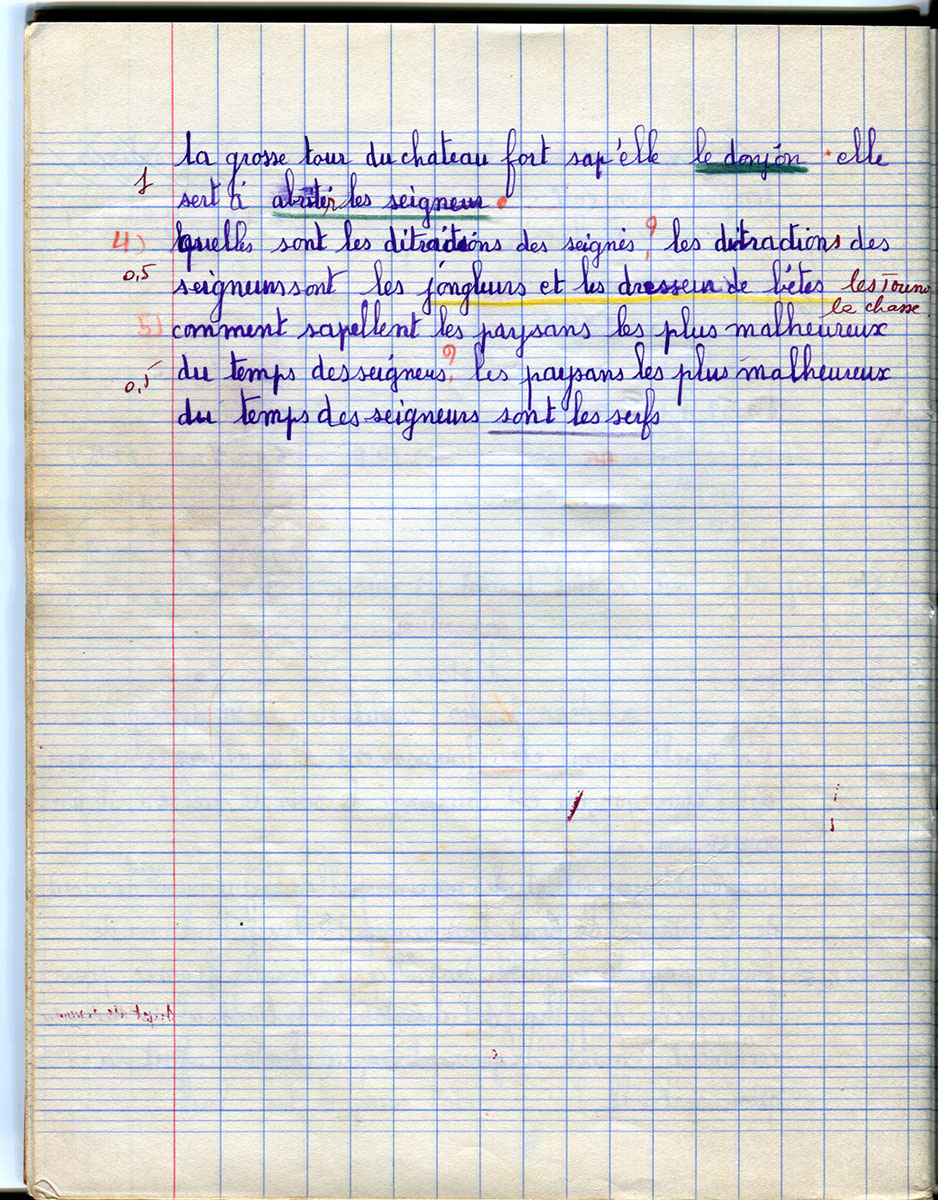 la grosse tour du chateau fort sap'élle le donjon. elle
1
sert à abriter les seigneur.
4) quelles sont les ditraitions des seignes? les ditractions des
0,5
seigneurs sont les jongleurs et les dresseur de bêtes les Tourno
la chasse
5) comment sapellent les paysans les plus malheureux
0,5
du temps des seigneurs? les paysans les plus malheureux
du temps des seigneurs sont les serfs